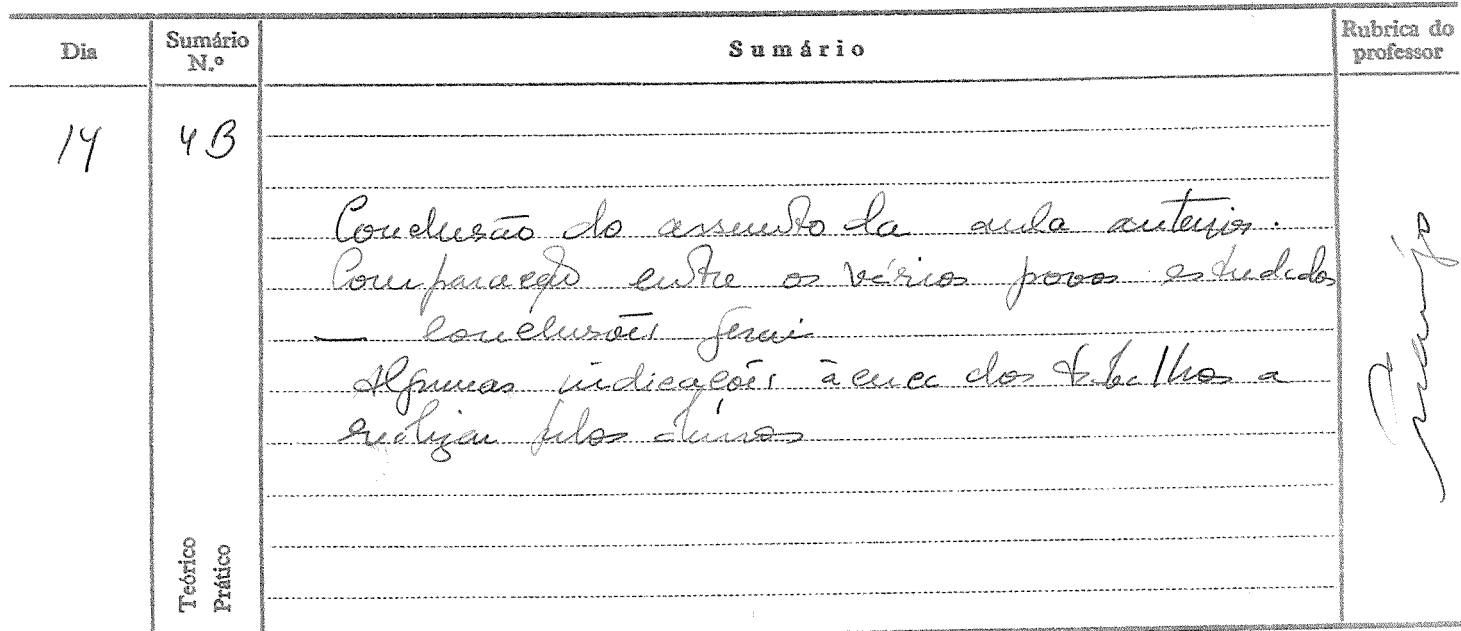 Dia
Sumário N.º
Sumário
Rubrica do professor
14
4B
Conclusão do assunto da aula anterior.
Comparação entre os vários povos estudados
— conclusões gerais
Algumas indicações àcerca dos trabalhos a
realizar pelos alunos
Teórico
Prático